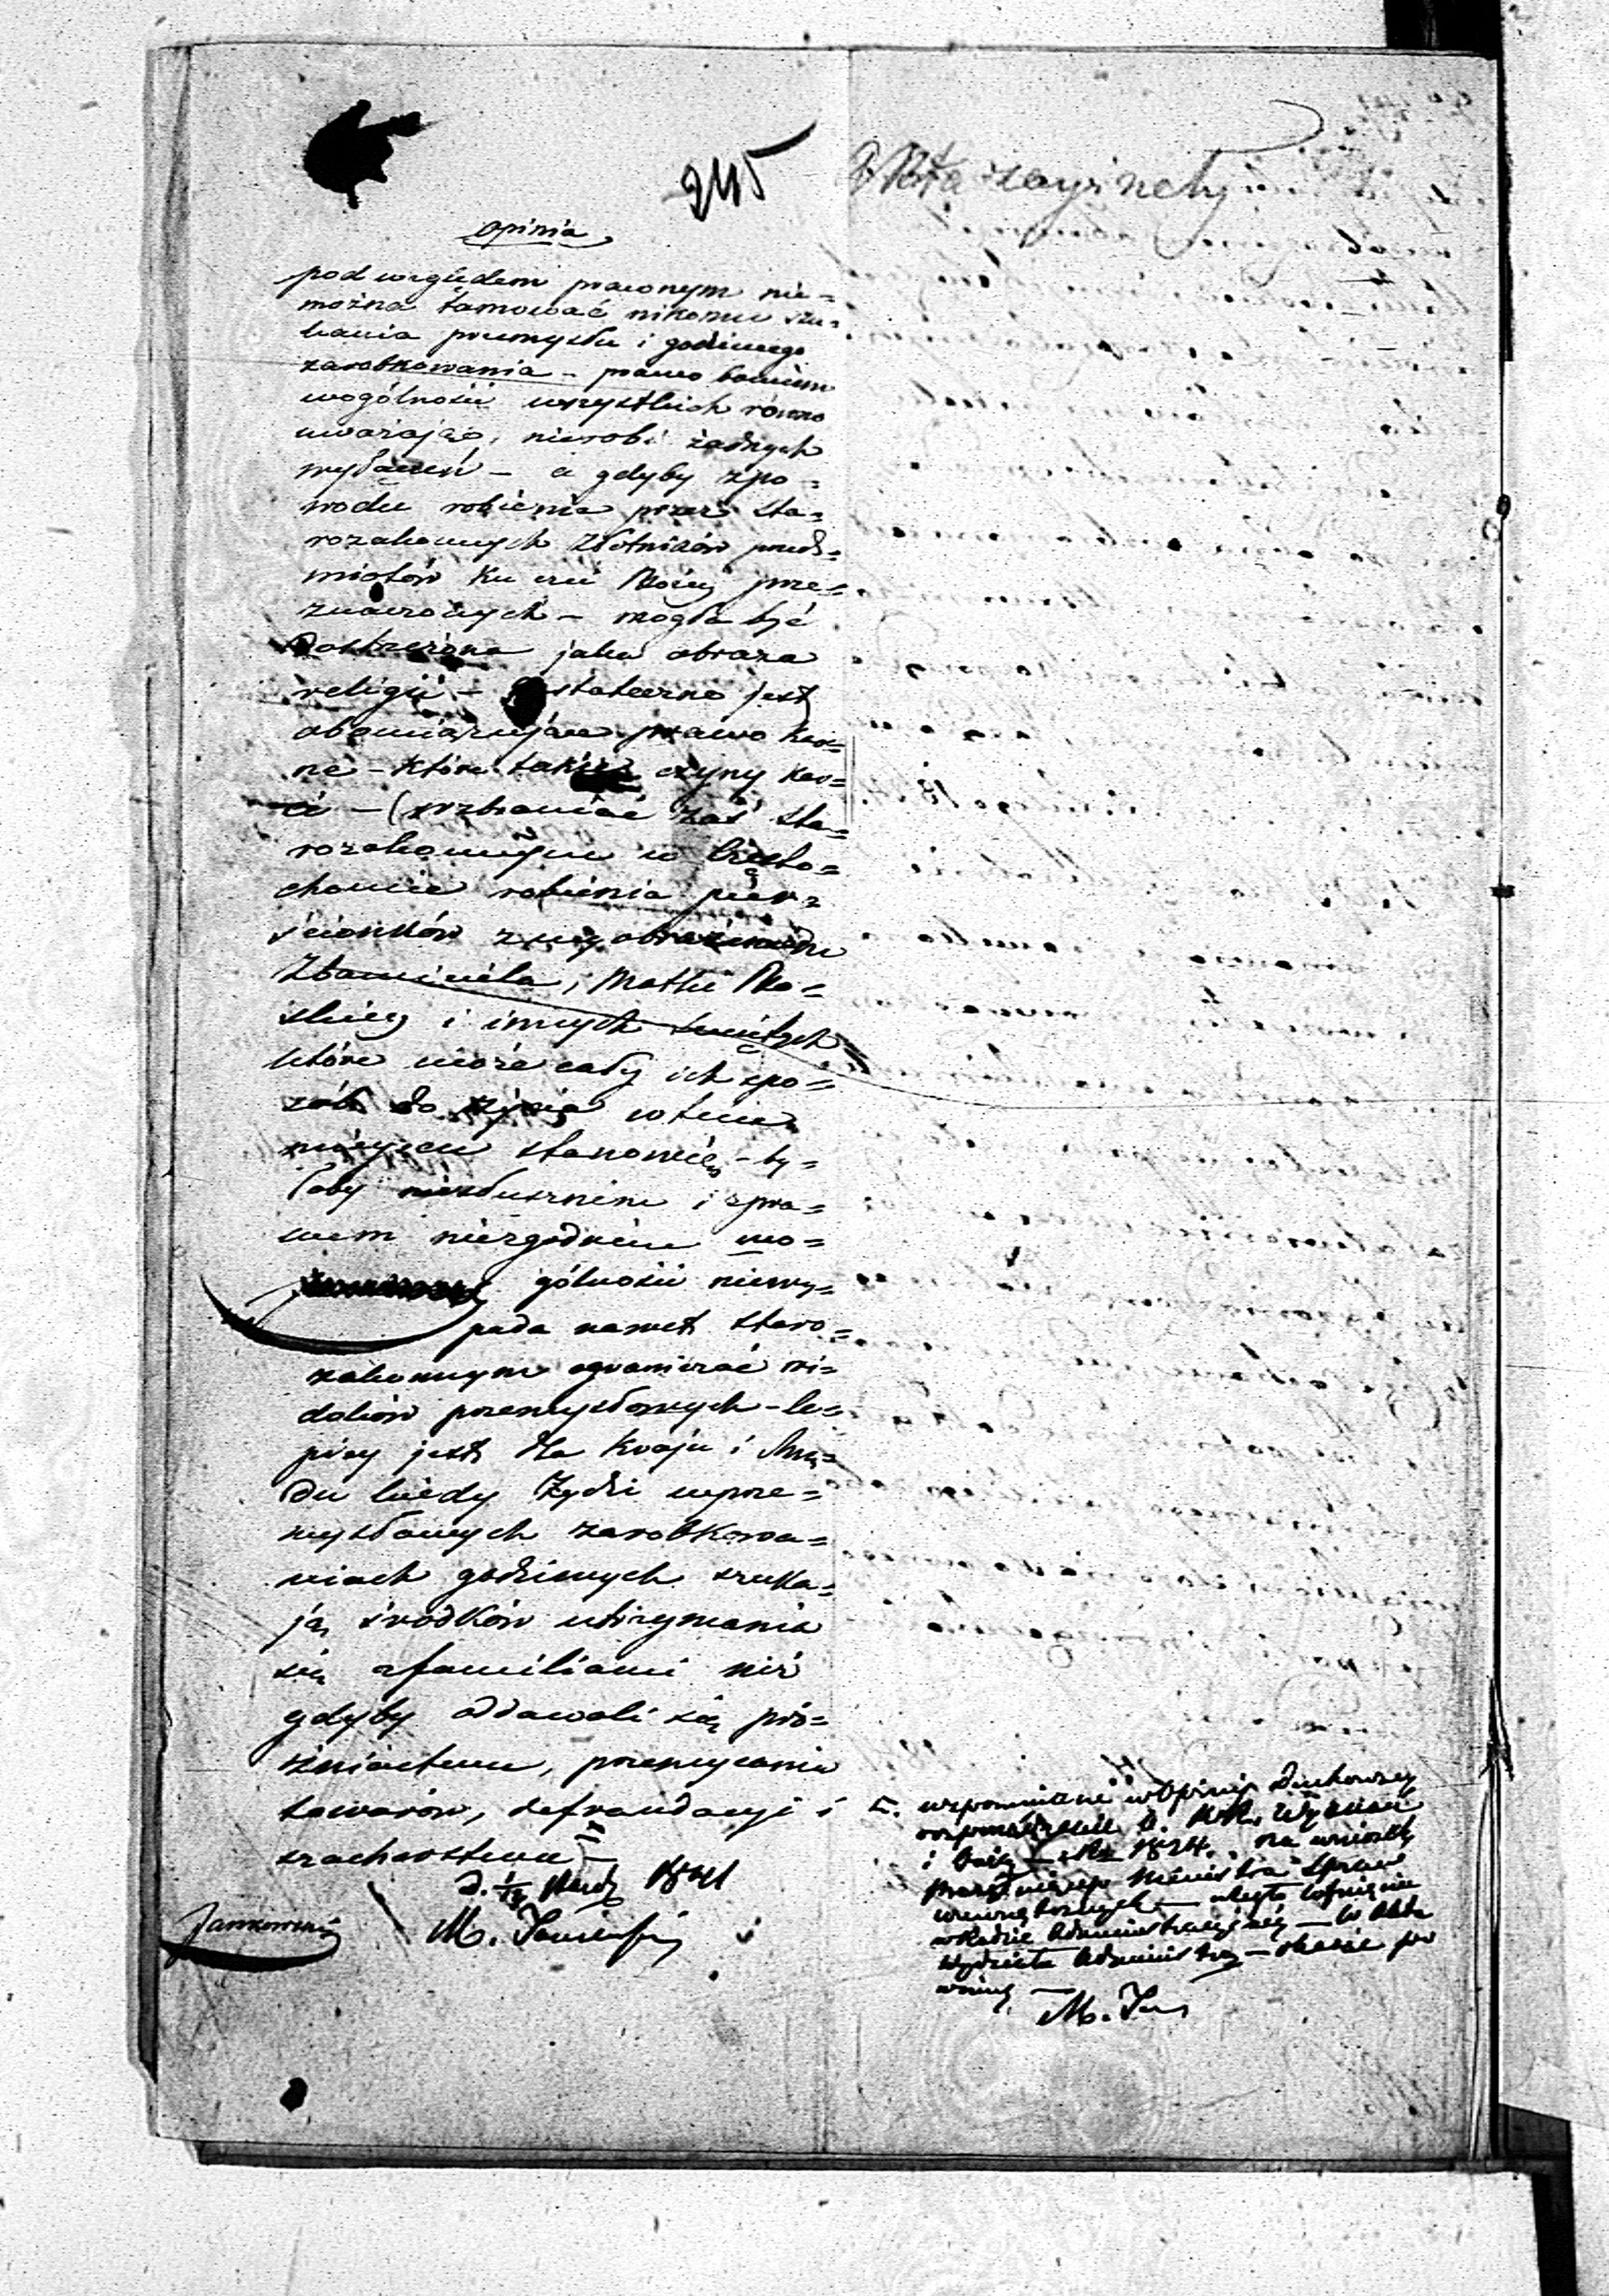 245
Opinia
pod względem prawnym nie=
można tamować nikomu szu=
kania przemysłu i godziwego
zarobkowania – prawo bowiem
wogólności wszystkich równo
uważając, nierobi żadnych
wyłączeń – a gdyby zpo=
wodu robienia przez sta=
rozakonnych złotników przed=
miotów ku czci Bożej prze=
znaczonych – mogła być
dostrzeżona jaka obraza
religii – dostateczne jest
obowiązujące prawo kar=
ne – które takie czyny kar=
ci – (wzbraniać zaś sta=
rozakonnym w Często=
chowie robienia pier=
ścionków z wyobrażeniem
Zbawiciela, Matki Bo=
skiej i innych Świętych
które może cały ich spo=
sób do życia w tem
miejscu stanowić – by=
łoby niesłusznem i zpra=
wem niezgodnem wo=
gólności niewy=
pada nawet staro=
zakonnym ograniczać wi=
doków przemysłowych – le=
piej jest dla Kraju i Rzą=
du kiedy Żydzi wprze=
mysłowych zarobkowa=
niach godziwych szuka=
ją środków utrzymania
się z familiami niż
gdyby oddawali się próż=
niactwu, przemycaniu
towarów, defraudacyi i
szacherstwu –
1841
M.
Jankowski
wspomniane w Opinii Duchownej
rozporządzenie K. R. Wyznań
i Ośw. 1824. na wniosek
Ministra Spraw
wewnętrznych – cofnięcie
w Radzie Administracyjnej –
Wydziału Administr. –
M.